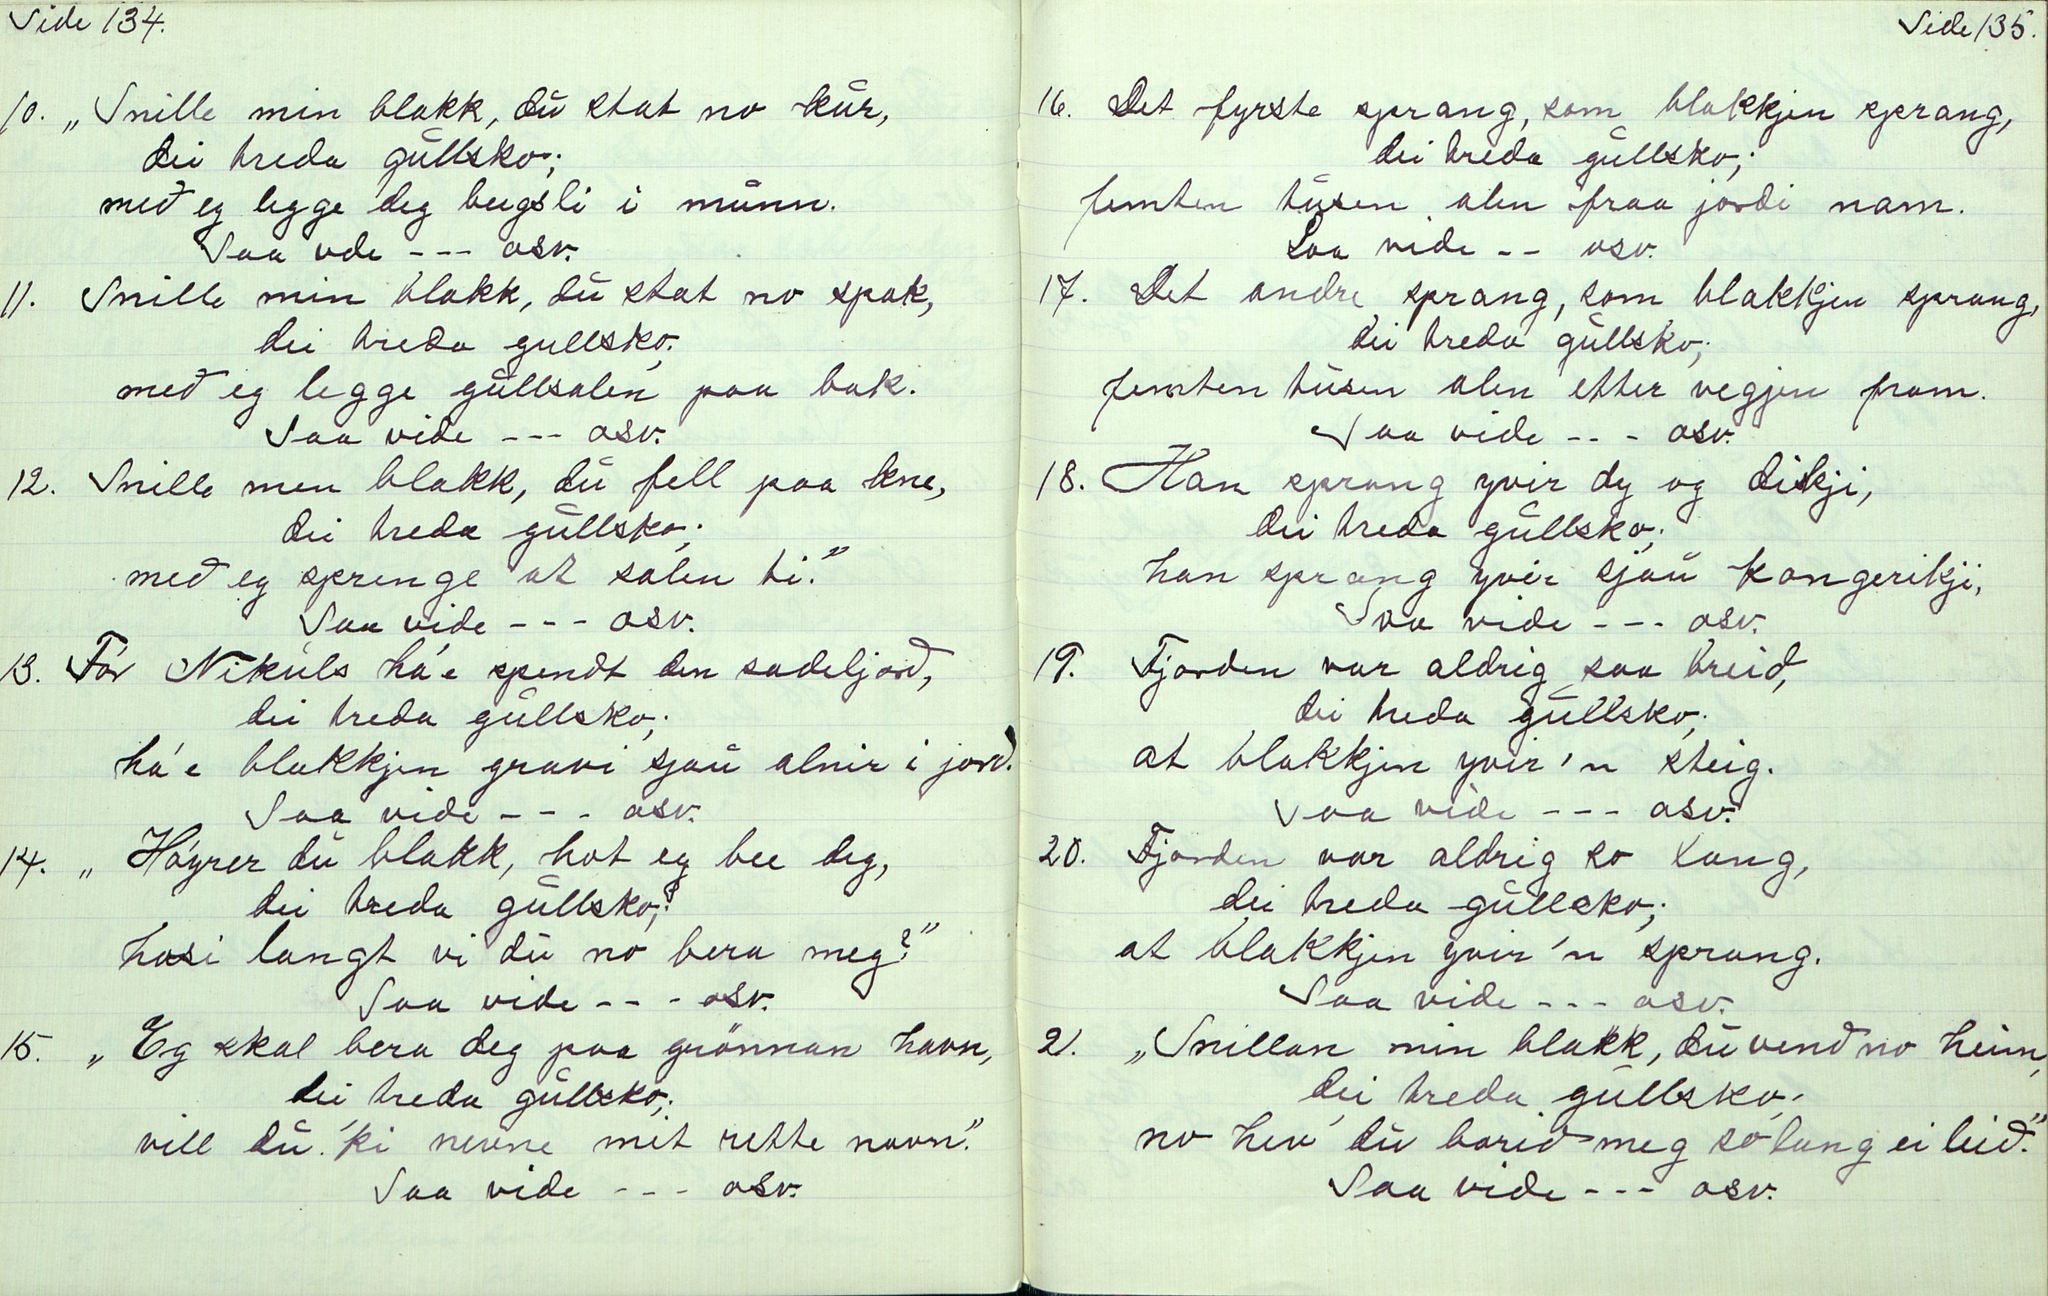 Side 134.
10. „Snille min blakk, du stat no kūr,
dei treda gūllsko;
með eg legge deg beigsli i mūnn.
Saa vde --- osv.
11. Snille min blakk, dū stat no spak,
dei treda gullsko;
með eg legge gūllsalen paa bak.
Saa vide --- osv.
12. Snille men blakk, dū fell paa kne,
dei treda gūllsko;
með eg sprenge at salen ti."
Saa vide --- osv.
13. Før Nikūls há'e spendt den sadeljord,
dei treda gūllsko;
há'e blakkjen gravi sjaū alnir i jord.
Saa vide --- osv.
14. „Høyrer dū blakk, hot eg bee deg,
dei treda gūllsko;
hosi langt vi dū no bera meg?"
Saa vide --- osv.
15. „Eg skal bera deg paa grønnan havn,
dei treda gūllsko;
vill dū 'ki nevne mit rette navn."
Saa vide --- osv.
Side 135.
16. Det fyrste sprang, som blakkjen sprang,
dei treda gūllsko;
femten tūsen alen fraa jordi nam.
Saa vide -- osv.
17. Det andre sprang, som blakkjen sprang,
dei treda gūllsko;
femten tūsen alen etter vegjen fram.
Saa vide --- osv.
18. Han sprang yvir dy og dikji,
dei treda gūllsko;
han sprang yvir sjaū kongerikji,
Saa vide --- osv.
19. Fjorden var aldrig saa breið,
dei treda gūllsko;
at blakkjen yvir'n steig.
Saa vide --- osv.
20. Fjorden var aldrig so lang,
dei treda gūllsko;
at blakkjen yvir'n sprang.
Saa vide --- osv.
21. „Snillan min blakk, dū vend no heim,
dei treda gūllsko;
no hev' dū borið meg so lang ei leið."
Saa vide --- osv.